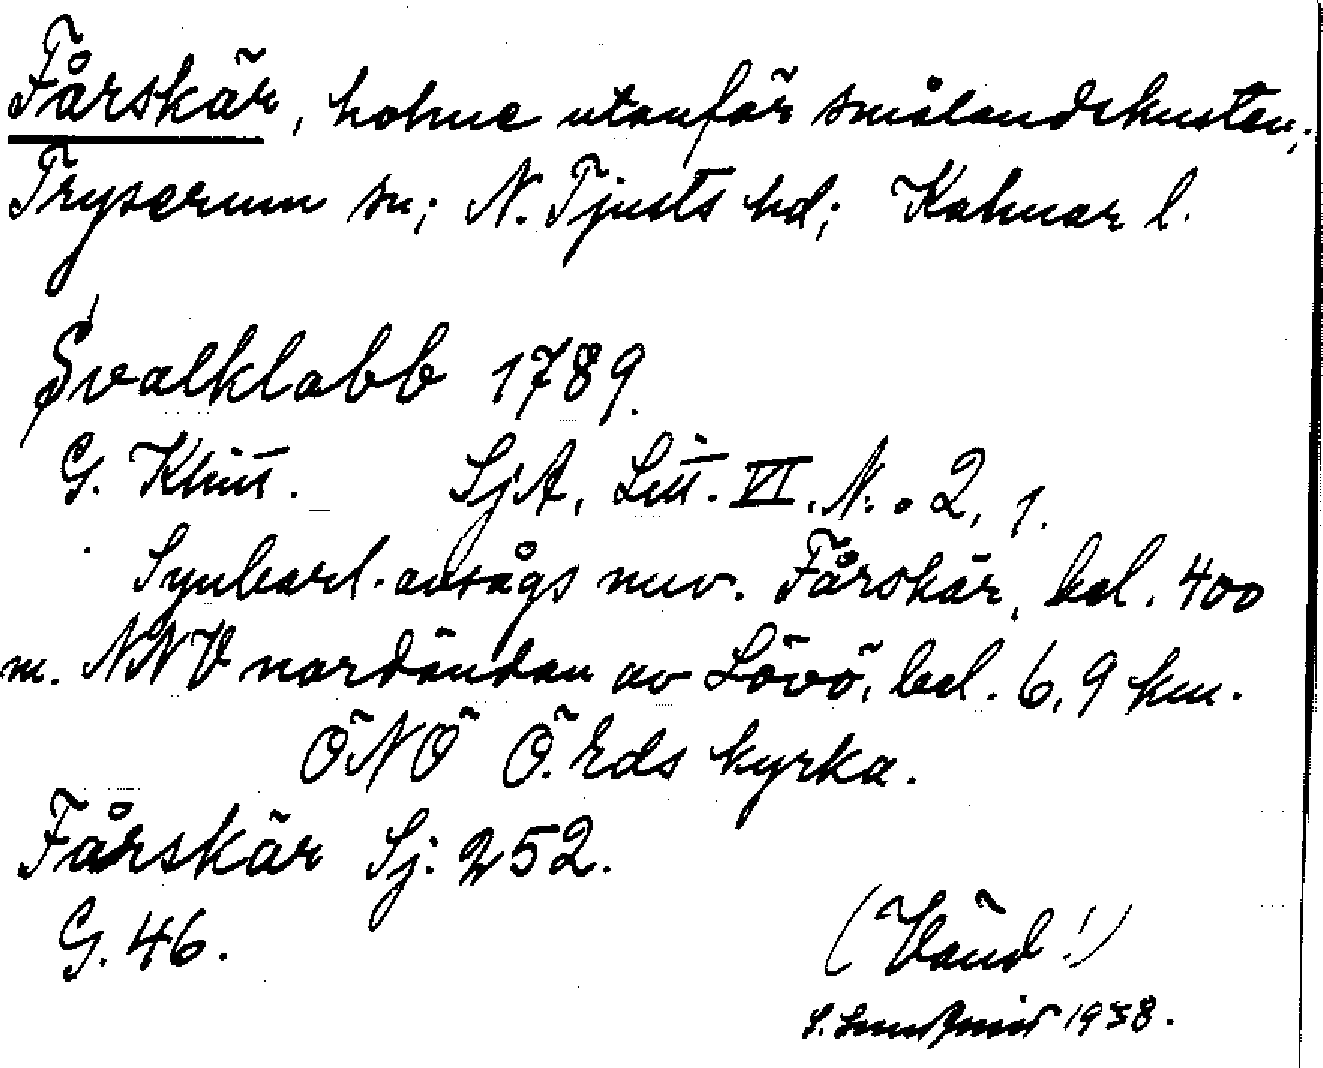 Fårskär, holme utanför smålandskusten;
Tryserum sn; N. Tjusts hd; Kalmar l.
Svalklabb 1789.
G. Klint. SjA, Litt. VI. N:o 2, 1.
Synbarl. avsågs nuv. Fårskär, bel. 400
m. NNV nordändan av Lövö, bel. 6,9 km.
ÖNÖ Ö. Eds kyrka.
Fårskär Sj: 252.
G. 46.
(Vänd!)
1938.